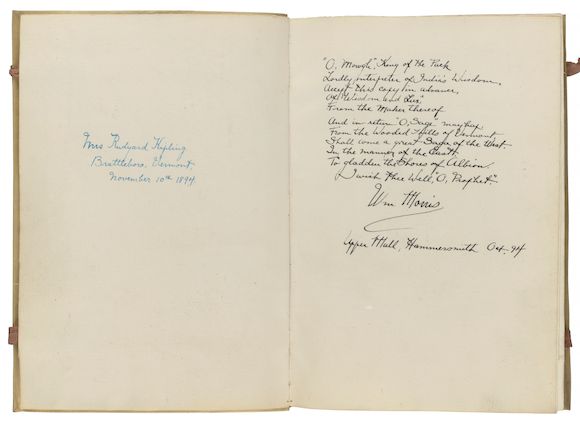 Mrs Rudyard Kipling
Brattleboro, Vermont.
November 10th 1894.
"O, Mowgli", King of the Pack
Lordly interpreter of India's Wisdom,
Accept this copy in advance,
Of "Wisdom and Lies",
From the Maker thereof
And in return "O, Sage" may hap
From the Wooded Hills of Vermont
Shall come a great Saga of the West
In the manner of the East
To gladden the Shores of Albion
I wish thee Well, "O, Prophet".
Wm Morris
Upper Mall, Hammersmith Oct. 94